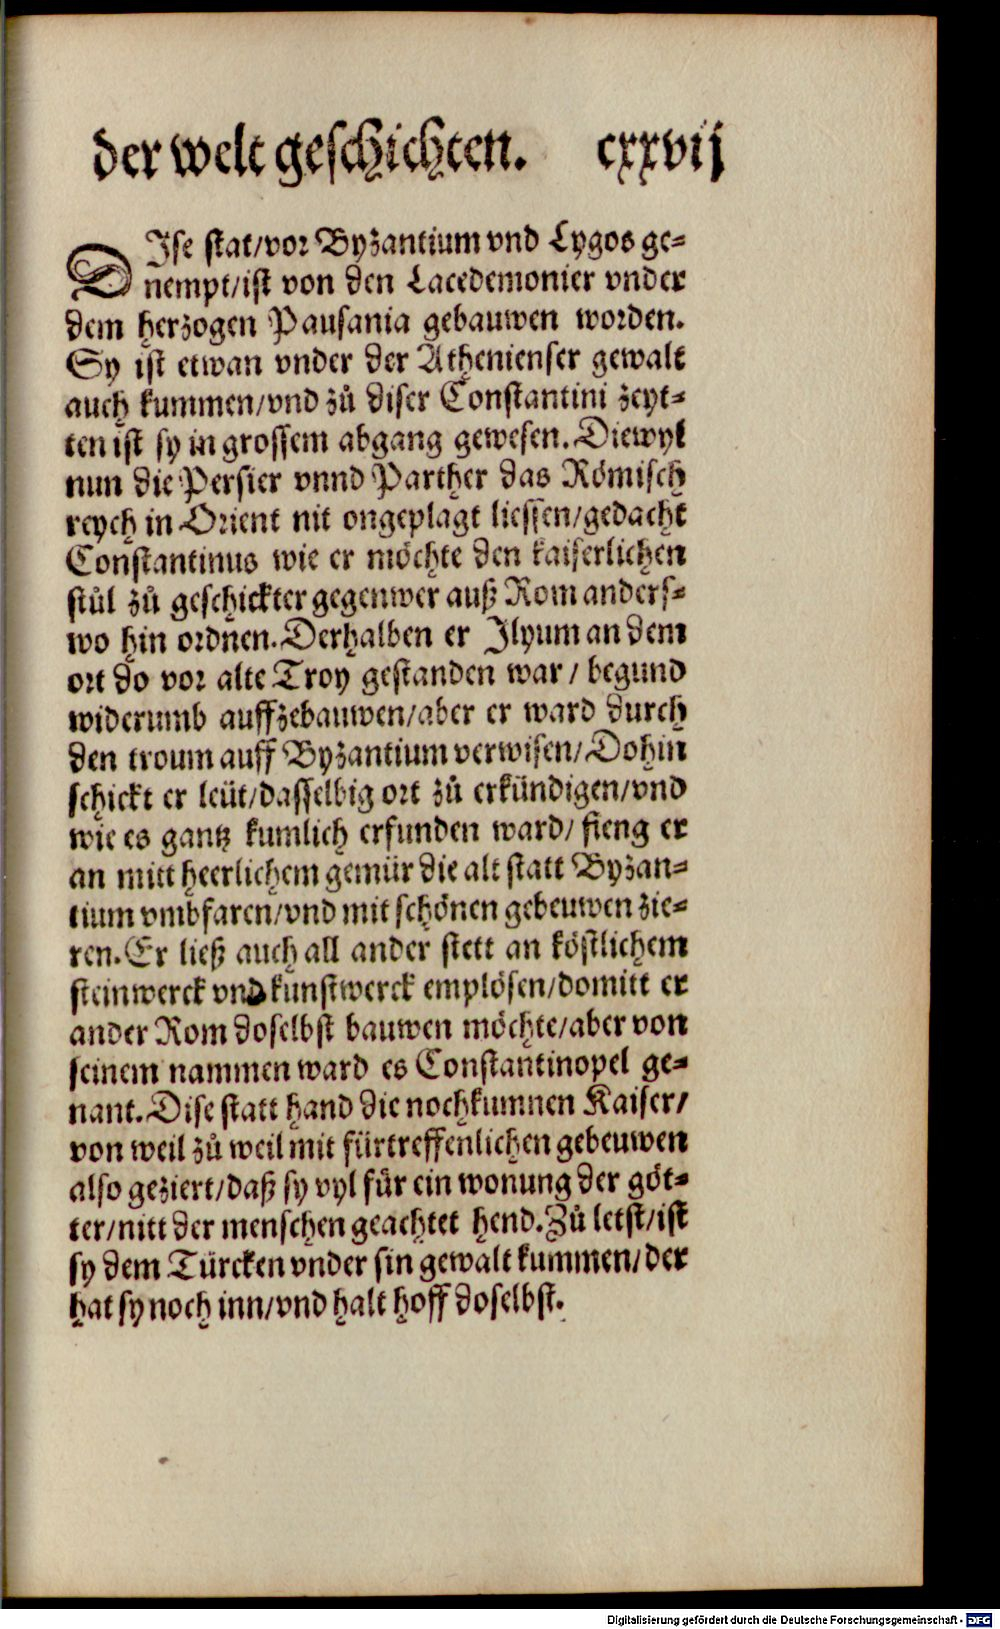 der welt geschichten. cxxvij
DIse stat/vor Byzantium vnd Lygos ge-
nempt/ist von den Lacedemonier vnder
dem herzogen Pausania gebauwen worden.
Sy ist etwan vnder der Athenienser gewalt
auch kummen/vnd zů diser Constantini zeyt-
ten ist sy in grossem abgang gewesen. Diewyl
nun die Persier vnnd Parther das Römisch
reych in Orient nit ongeplagt liessen/gedacht
Constantinus wie er möchte den kaiserlichen
stůl zů geschickter gegenwer auß Rom anders-
wo hin ordnen. Derhalben er Ilyum an dem
ort do vor alte Troy gestanden war/ begund
widerumb auffzebauwen/aber er ward durch
den troum auff Byzantium verwisen/Dohin
schickt er leüt/dasselbig ort zů erkündigen/vnd
wie es gantz kumlich erfunden ward/ fieng er
an mitt heerlichem gemür die alt statt Byzan-
tium vmbfaren/vnd mit schönen gebeuwen zie-
ren. Er ließ auch all ander stett an köstlichem
steinwerck vnd kunstwerck emplösen/domitt er
ander Rom doselbst bauwen möchte/aber von
seinem nammen ward es Constantinopel ge-
nant. Dise statt hand die nochkumnen Kaiser/
von weil zů weil mit fürtreffenlichen gebeuwen
also geziert/daß sy vyl für ein wonung der göt-
ter/nitt der menschen geachtet hend. Zů letst/ist
sy dem Türcken vnder sin gewalt kummen/der
hat sy noch inn/vnd halt hoff doselbst.
Digitalisierung gefördert durch die Deutsche Forschungsgemeinschaft - DFG